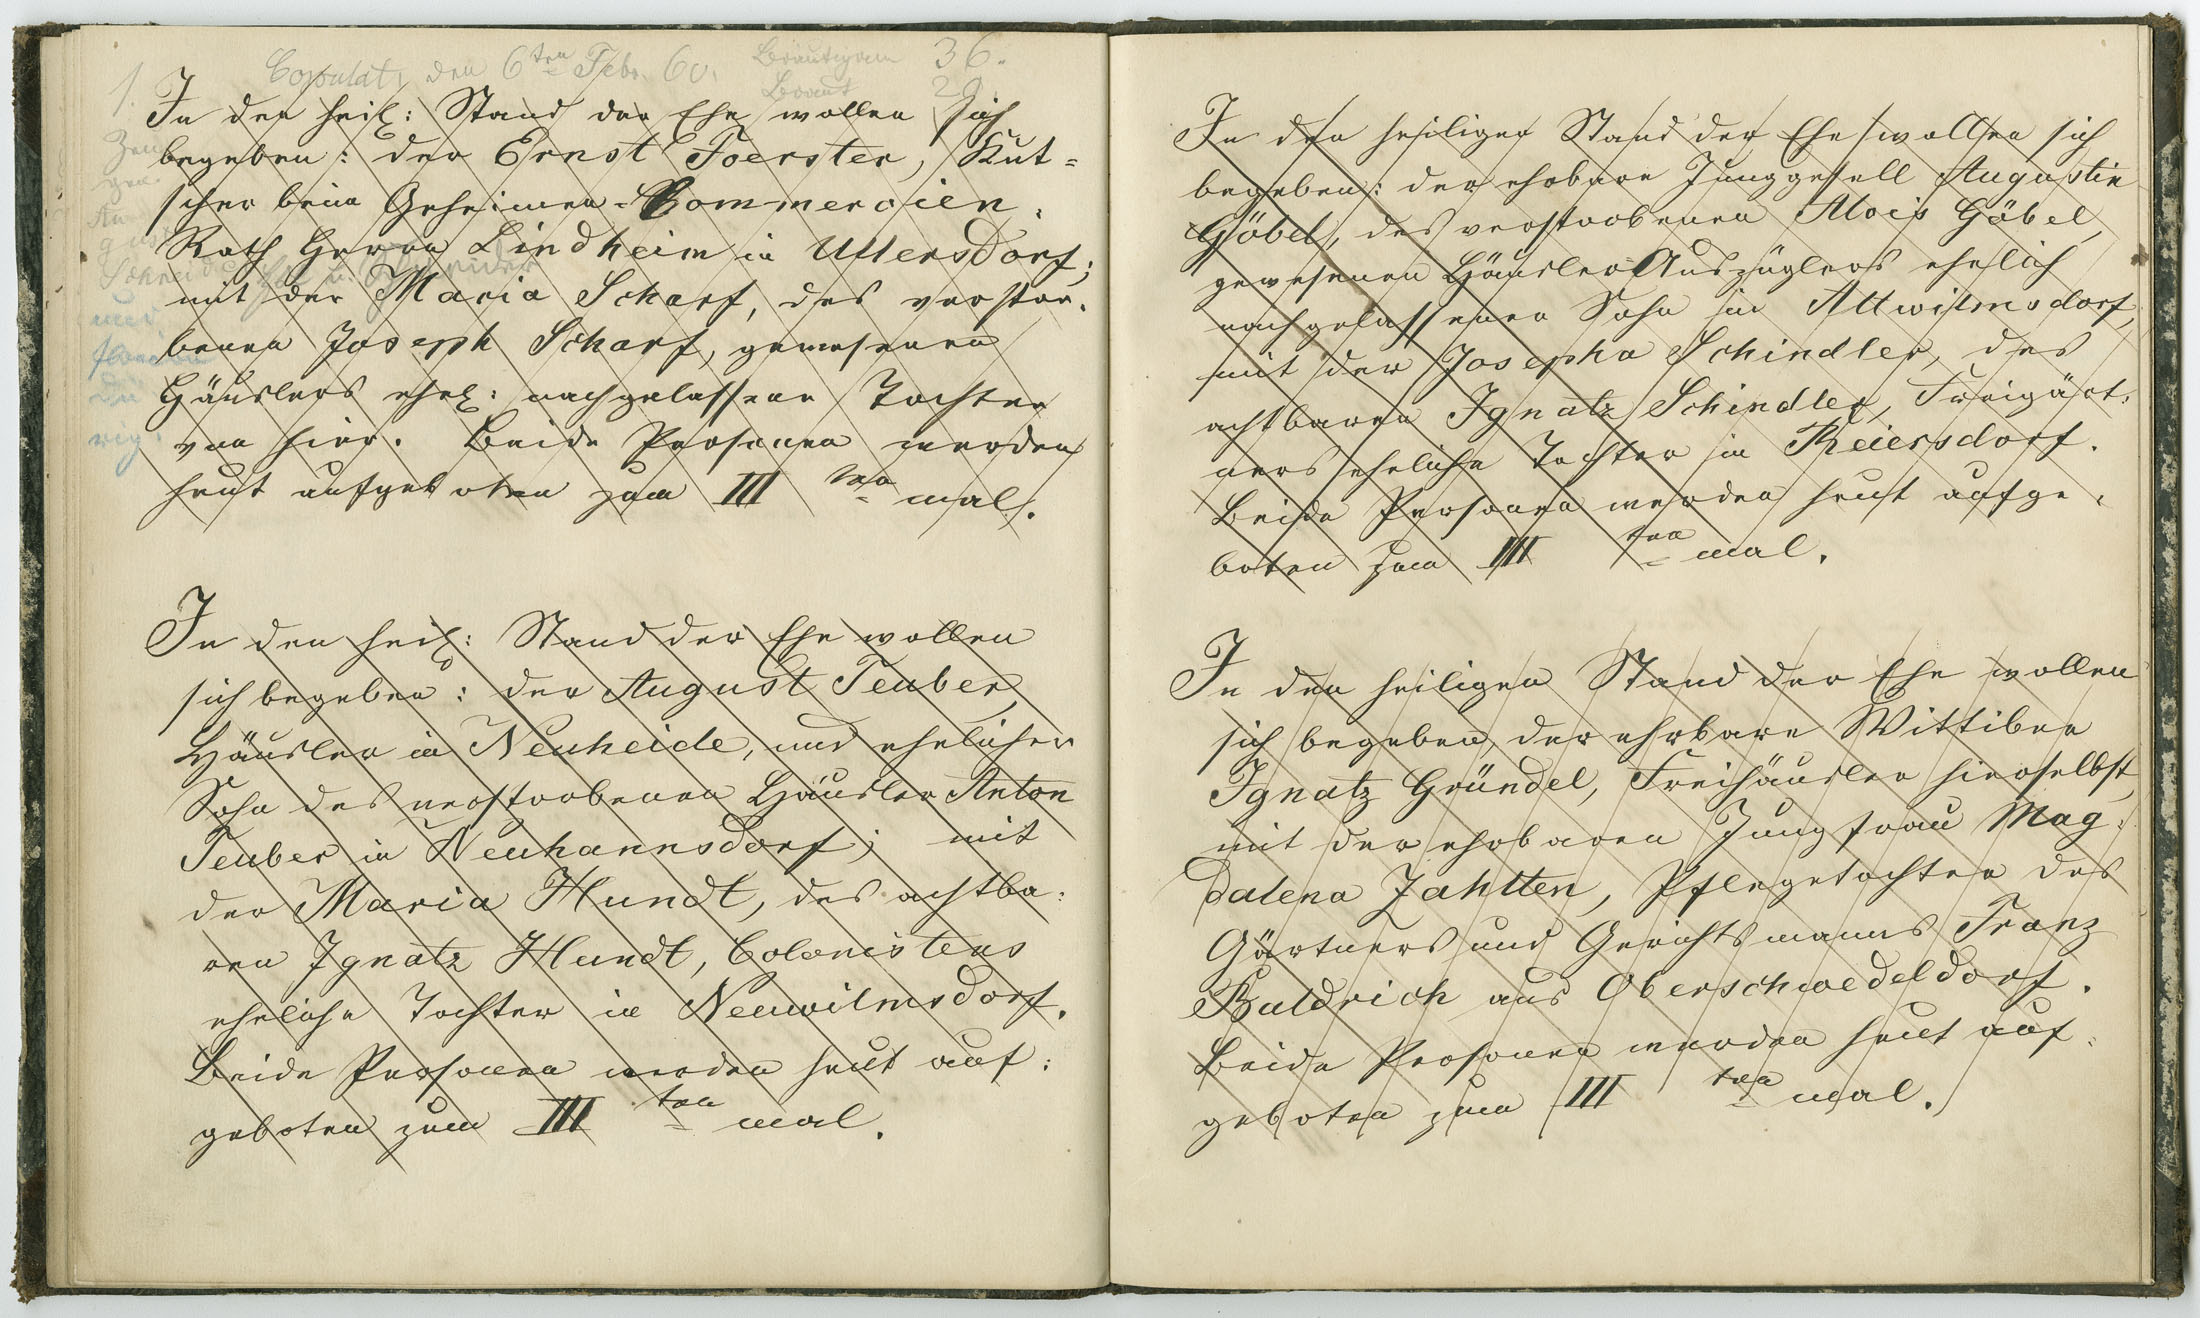 1. Copulat, den 6ten Febr. 60. Bräutigam 36.
Braut
In den heil: Stand der Ehe wollen sich
begeben: der Ernst Foerster, Kut=
scher beim Geheimen-Commercien-
Rath Herrn Lindheim in Ullersdorf;
mit der Maria Scharf, des verstor-
benen Joseph Scharf, gewesenen
Häuslers ehel: nachgelassene Tochter
von hier. Beide Personen werden
heut aufgeboten zum III ten mal.
Zeu
gen.
Au
gust
Schneider
und
Florian
rig:
In den heil: Stand der Ehe wollen
sich begeben: der August Teuber,
Häusler in Neuheide, und ehelicher
Sohn des verstorbenen Häusler Anton
Teuber in Neuhannsdorf; mit
der Maria Hundt, des achtba:
ren Ignatz Hundt, Colonistens
eheliche Tochter in Neuwilmsdorf.
Beide Personen werden heut auf:
geboten zum III ten mal.
In den heiligen Stand der Ehe wollen sich
begeben: der ehrbare Junggesell Augustin
Göbel, des verstorbenen Alois Göbel,
gewesenen Häusler Auszüglers ehelich
nachgelassener Sohn in Altwilmsdorf,
mit der Josepha Schindler, des
achtbaren Ignatz Schindler, Freigärt:
ners eheliche Tochter in Reiersdorf.
Beide Personen werden heut aufge:
boten zum III ten mal.
In den heiligen Stand der Ehe wollen
sich begeben, der ehrbare Wittiber
Ignatz Gründel, Freihäusler hierselbst,
mit der ehrbaren Jungfrau Mag:
dalena Zahlten, Pflegetochter des
Gärtners und Gerichtsmanns Franz
Buldrich aus Oberschwedeldorf.
Beide Personen werden heut auf:
geboten zum III ten mal.